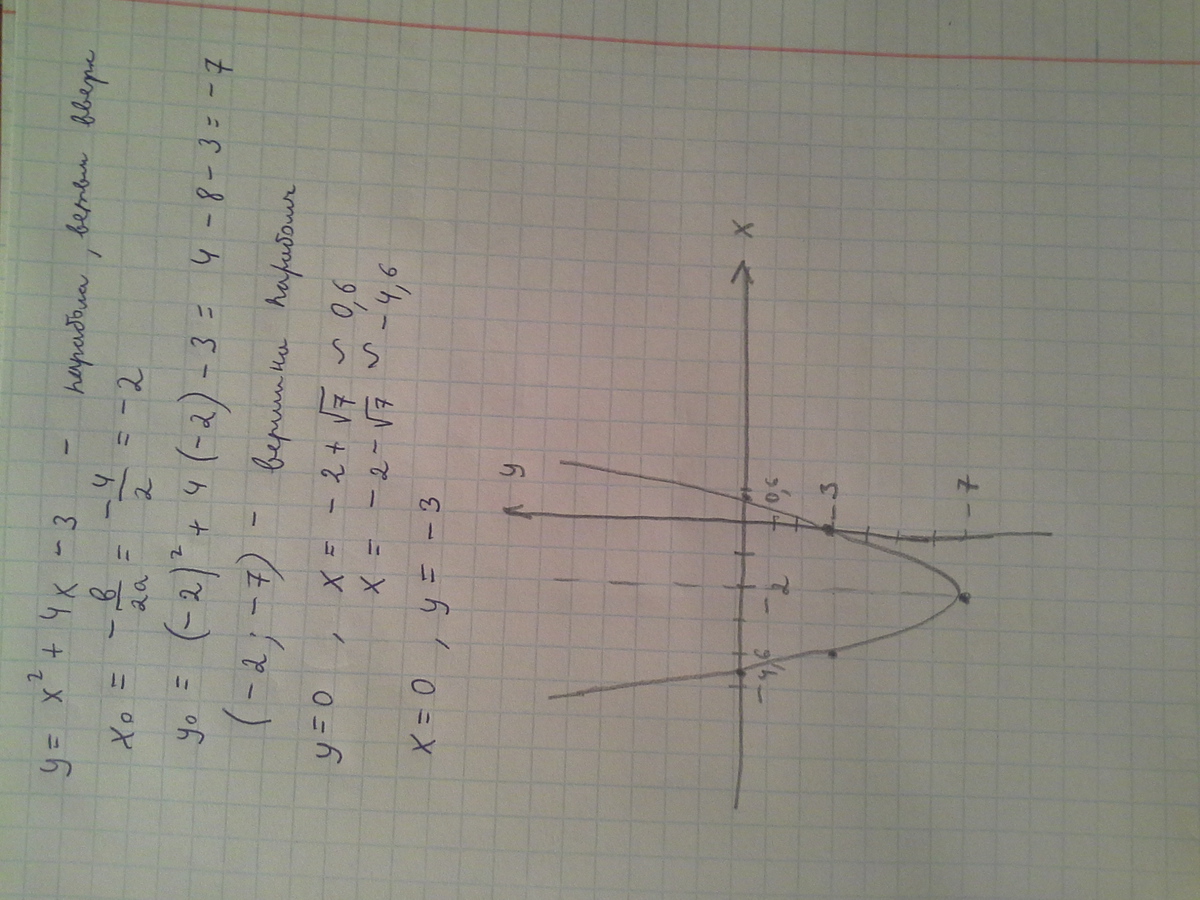 y = x² + 4x - 3 - парабола, ветви вверх
x₀ = -в/2а = -4/2 = -2
y₀ = (-2)² + 4(-2) - 3 = 4 - 8 - 3 = -7
(-2; -7) - вершина параболы
y = 0, x = -2 + √7 ~ 0,6
x = -2 - √7 ~ -4,6
x = 0, y = -3
y
x
-4,6
-2
0,6
-3
-7